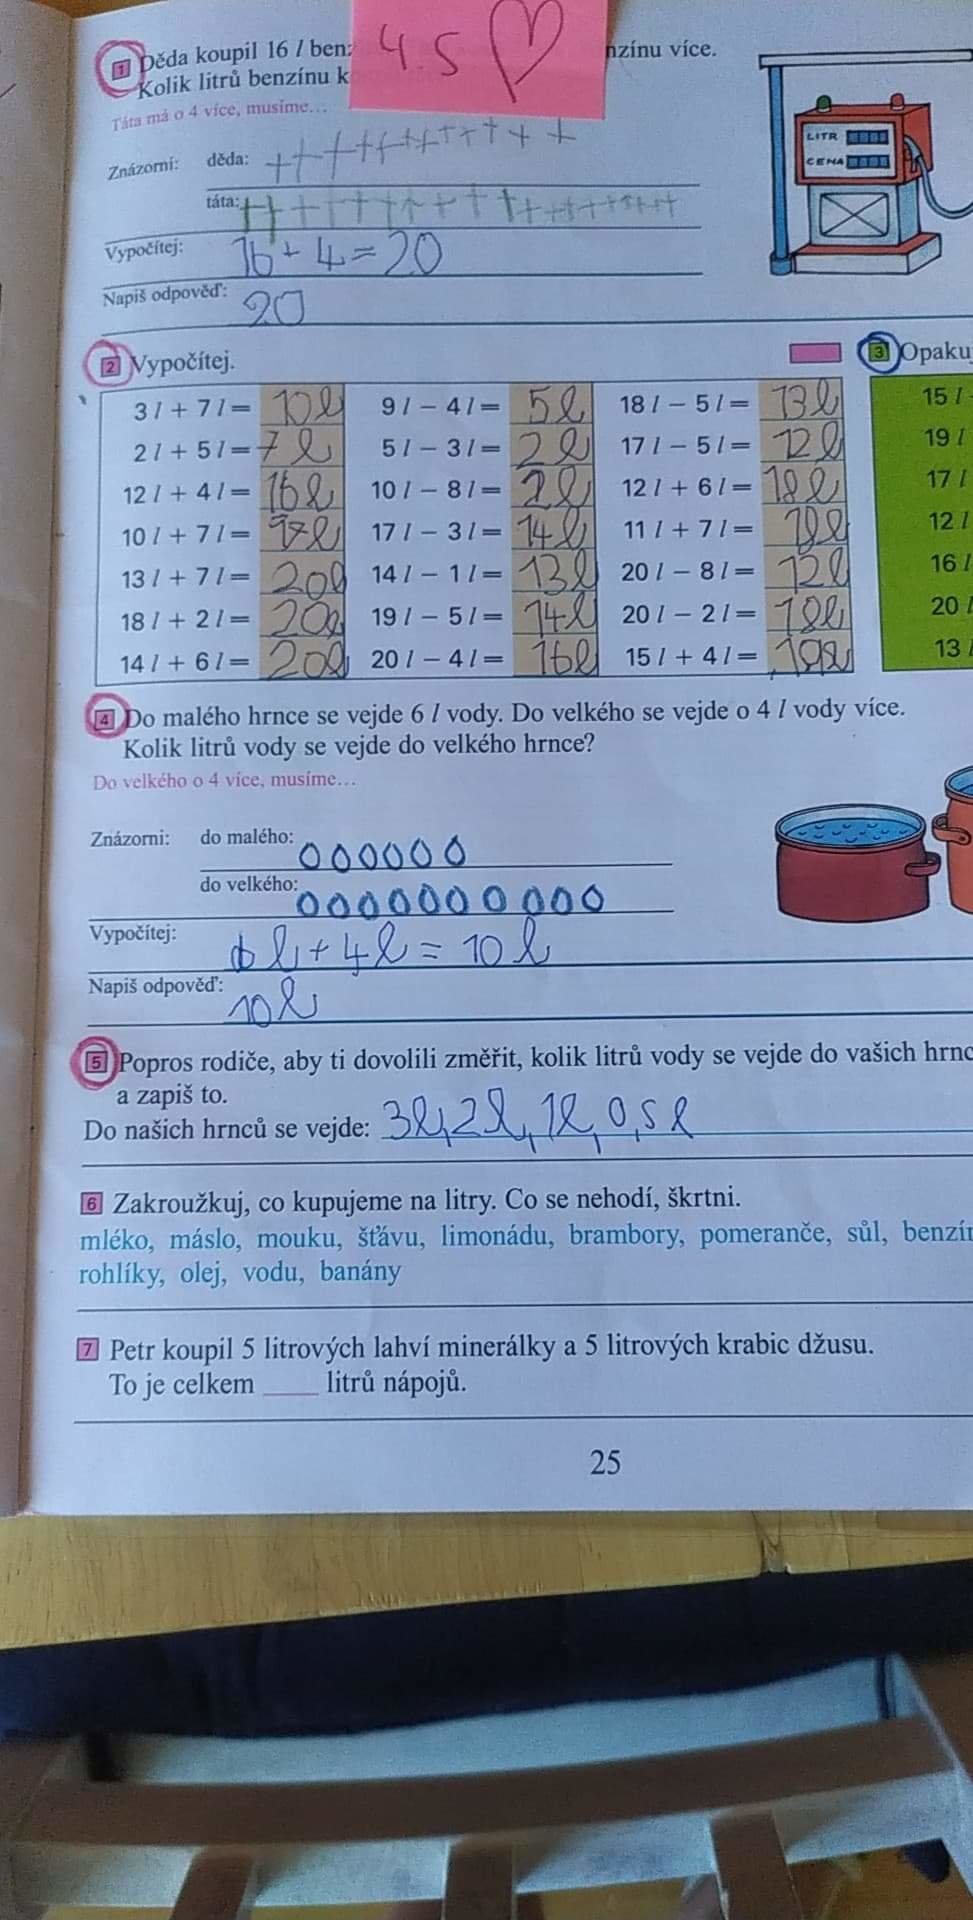 4.5
1 Děda koupil 16 l ben nzínu více.
Kolik litrů benzínu k
Táta má o 4 více, musíme...
LITR
CENA
Znázorni: děda:
táta:
Vypočítej: 16 + 4 = 20
Napiš odpověď: 20
2 Vypočítej.
3 l + 7 l = 10 l 9 l - 4 l = 5 l 18 l - 5 l = 13 l
2 l + 5 l = 7 l 5 l - 3 l = 2 l 17 l - 5 l = 12 l
12 l + 4 l = 16 l 10 l - 8 l = 2 l 12 l + 6 l = 18 l
10 l + 7 l = 17 l 17 l - 3 l = 14 l 11 l + 7 l = 18 l
13 l + 7 l = 20 l 14 l - 1 l = 13 l 20 l - 8 l = 12 l
18 l + 2 l = 20 l 19 l - 5 l = 14 l 20 l - 2 l = 18 l
14 l + 6 l = 20 l 20 l - 4 l = 16 l 15 l + 4 l = 19 l
3 Opaku
15 l
19 l
17 l
12 l
16 l
20 l
13 l
4 Do malého hrnce se vejde 6 l vody. Do velkého se vejde o 4 l vody více.
Kolik litrů vody se vejde do velkého hrnce?
Do velkého o 4 více, musíme...
Znázorni: do malého:
do velkého:
Vypočítej: 6 l + 4 l = 10 l
Napiš odpověď: 10 l
5 Popros rodiče, aby ti dovolili změřit, kolik litrů vody se vejde do vašich hrnc
a zapiš to.
Do našich hrnců se vejde: 3 l, 2 l, 1 l, 0,5 l
6 Zakroužkuj, co kupujeme na litry. Co se nehodí, škrtni.
mléko, máslo, mouku, šťávu, limonádu, brambory, pomeranče, sůl, benzín
rohlíky, olej, vodu, banány
7 Petr koupil 5 litrových lahví minerálky a 5 litrových krabic džusu.
To je celkem ____ litrů nápojů.
25